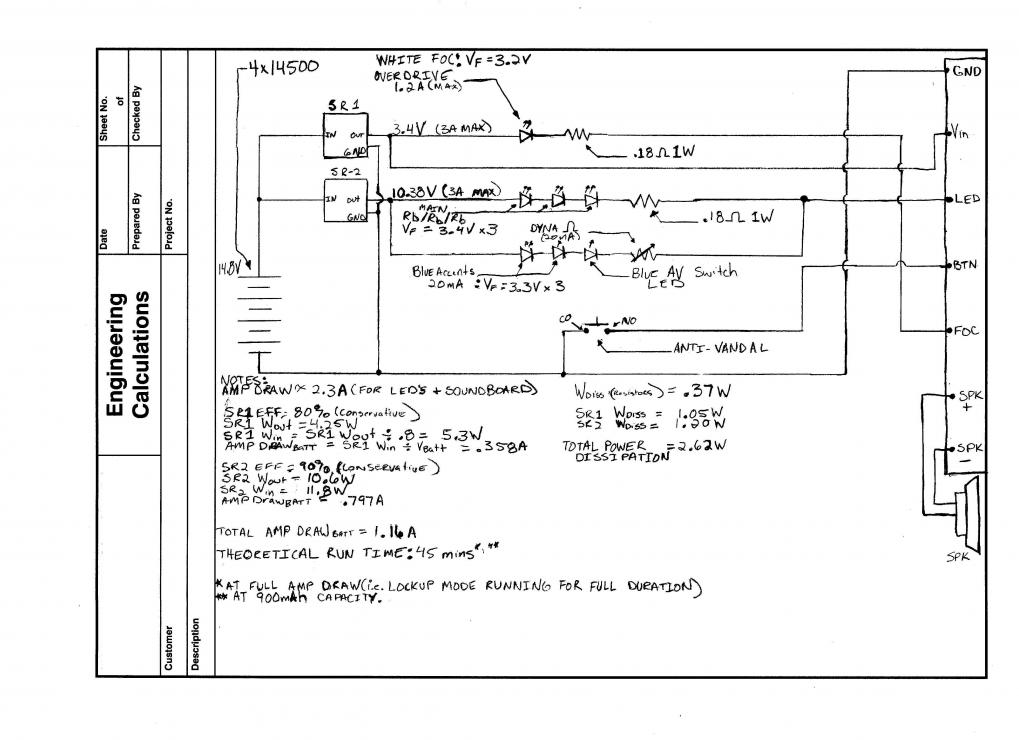 Sheet No.
of
Checked By
Date
Prepared By
Project No.
Engineering
Calculations
Customer
Description
4x14500
WHITE FOC: VF = 3.2V
OVERDRIVE
1.2A (MAX)
SR1
IN OUT
GND
3.4V (3A MAX)
.18Ω 1W
SR-2
IN OUT
GND
10.38V (3A MAX)
MAIN
Rb/Rb/Rb
VF = 3.4V x 3
.18Ω 1W
DYNA Ω
(20mA)
14.8V
Blue Accents
20mA : VF = 3.3V x 3
Blue AV Switch
LED
CO
NO
ANTI-VANDAL
GND
Vin
LED
BTN
FOC
SPK
+
SPK
-
SPK
NOTES:
AMP DRAW ≈ 2.3A (FOR LED'S + SOUNDBOARD)
SR1 EFF = 80% (Conservative)
SR1 Wout = 4.25W
SR1 Win = SR1 Wout ÷ .8 = 5.3W
AMP DRAW BATT = SR1 Win ÷ VBatt = .358A
SR2 EFF = 90% (CONSERVATIVE)
SR2 Wout = 10.6W
SR2 Win = 11.8W
AMP DRAW BATT = .797A
TOTAL AMP DRAW BATT = 1.16A
THEORETICAL RUN TIME: 45 mins*,**
* AT FULL AMP DRAW (i.e. LOCKUP MODE RUNNING FOR FULL DURATION)
** AT 900mAh CAPACITY.
WDISS (Resistors) = .37W
SR1 WDISS = 1.05W
SR2 WDISS = 1.20W
TOTAL POWER = 2.62W
DISSIPATION